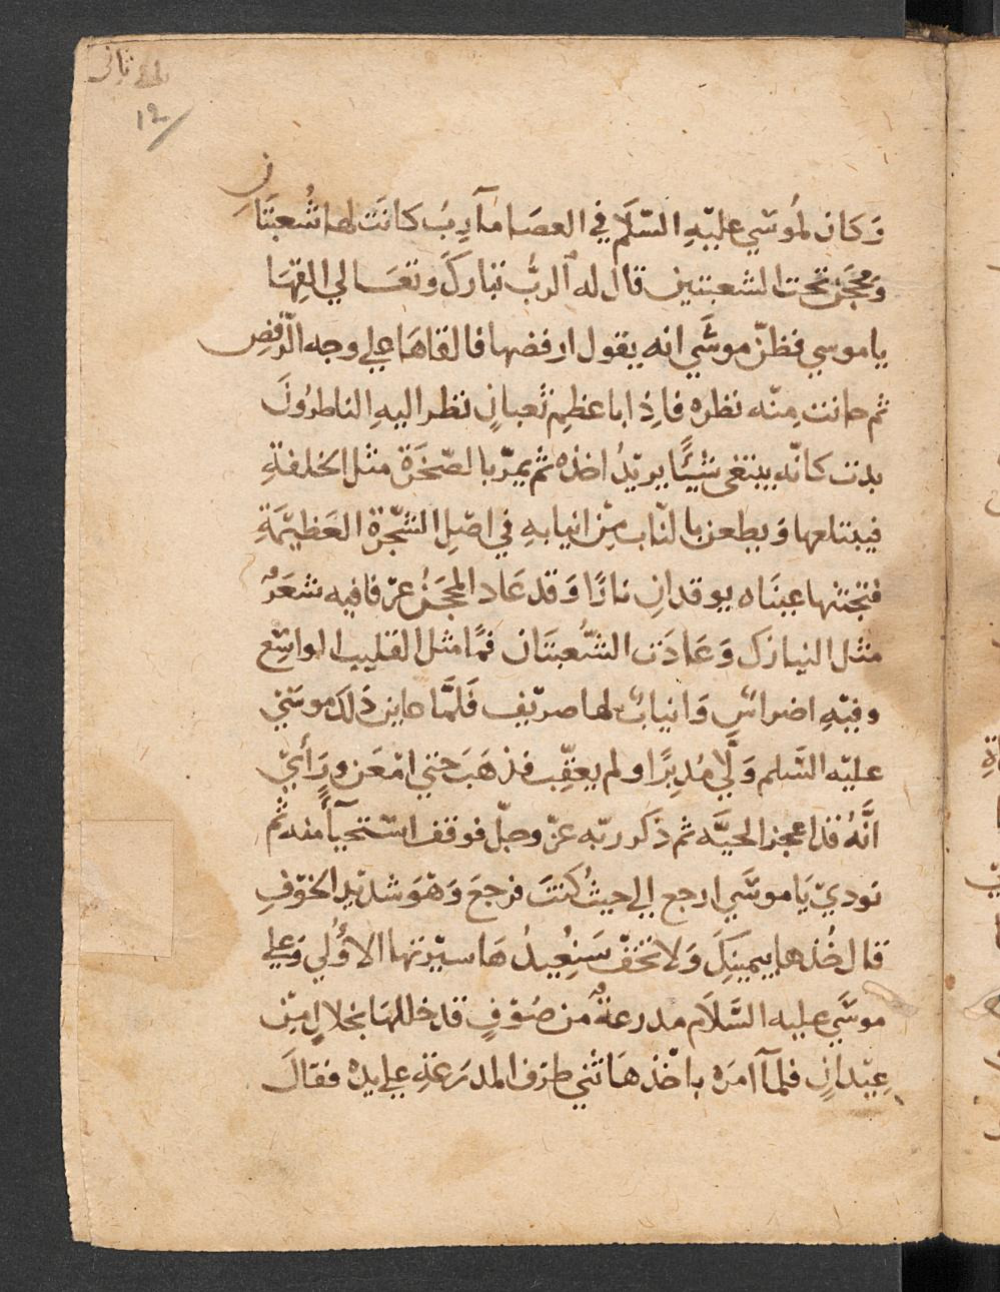 ثانى
12
وَكَان لمُوسَي عليْهِ السّلَام في العصَا مآرِبُ كانَت لها شُعبتَان
وَمحجَن تحت الشعبتين قال له الربُّ تبارَكَ وتعَالي القِهَا
ياموسي فظنّ موسَي انه يقول ارفضها فالقاهَا علي وجه الرّفضِ
ثم حانت مِنْه نظره فاذِا باعظمِ ثعبانٍ نظر اليهِ الناظرُونَ
يدب كانّه يبتغى شيًْا يريْدُ اخذه ثم يمرّ بالصّخرَة مثل الخلفةِ
فيبتلعها وَيطعن بالنّاب مِن انيابهِ في اصْلِ الشّجْرة العَظيْمَةِ
فتجتثها عينَاه يوقدانِ نارًا وَقد عَاد المحجَنُ عرْفا فيه شعَرٌ
مثل النيازك وَعَادَت الشُّعبتَان فمًا مثل القليب الواسِع
وفيْهِ اضراسٌ وَانيابٌ لها صريْف فلَمَّا عاين ذلكَ موسَي
عليْه السَّلم وَلّي مُدبِرًا ولم يعقِّب فذهَبَ حتي امْعَن ورَأيْ
انَّهُ قد اعجز الحيَّه ثم ذكَر ربّه عزّ وجلّ فوقف اسْتحيآءً منه ثم
نوديْ يَاموسَي ارجع الي حيثُ كنتَ فرجعَ وَهْوَ شديْد الخوْفِ
قال خُذها بيمينكَ وَلا تخفْ سَنعيدُهَا سيْرتها الاوُلي وَعلي
موسَي عليه السَّلَام مدرعةٌ من صُوْفٍ قد خللهَا بخلالٍ مِن
عِيْدانٍ فلمآ امرَه باخْذهَا ثني طرَف المدرَعَةِ علي يدِه فقالَ